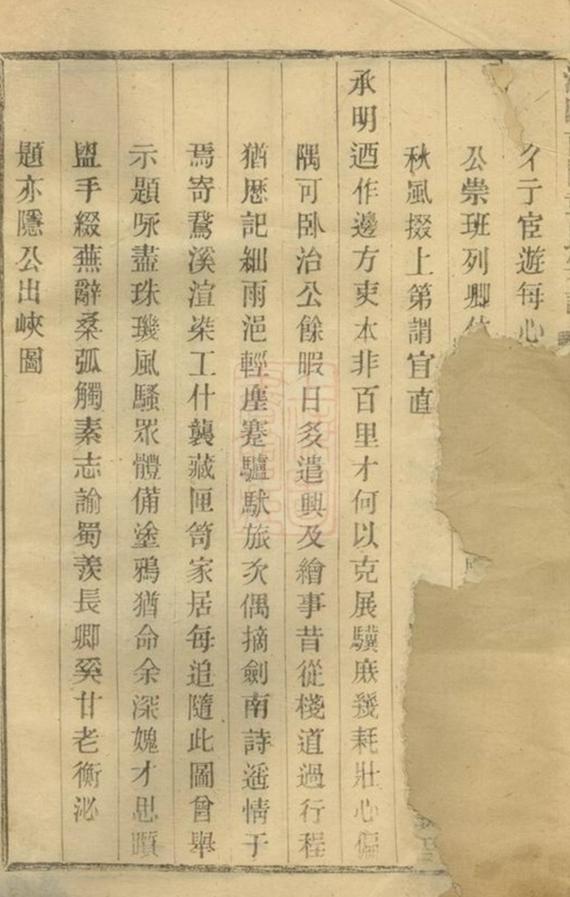 于宦遊每心
公崇班列卿
秋風掇上第謂宜直
承明迺作邊方吏本非百里才何以克展驥庶幾耗壯心偏
隅可卧治公餘暇日多遣興及繪事昔從棧道過行程
猶歷記細雨浥輕塵蹇驢馱旅次偶摘劍南詩遥情于
焉寄鵞溪渲染工什襲藏匣笥家居每追隨此圖曾舉
示題咏盡珠璣風騷眾體備塗鴉猶命余深媿才思
盥手綴蕪辭桑弧觸素志諭蜀羨長卿奚甘老衡泌
題亦隱公出峽圖